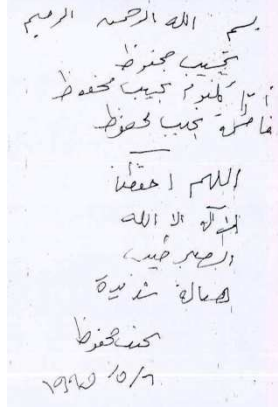 بسم الله الرحمن الرحيم
نجيب محفوظ
أم كلثوم نجيب محفوظ
فاطمة نجيب محفوظ
اللهم احفظنا
لا اله الا الله
الصبر طيب
نجيب محفوظ